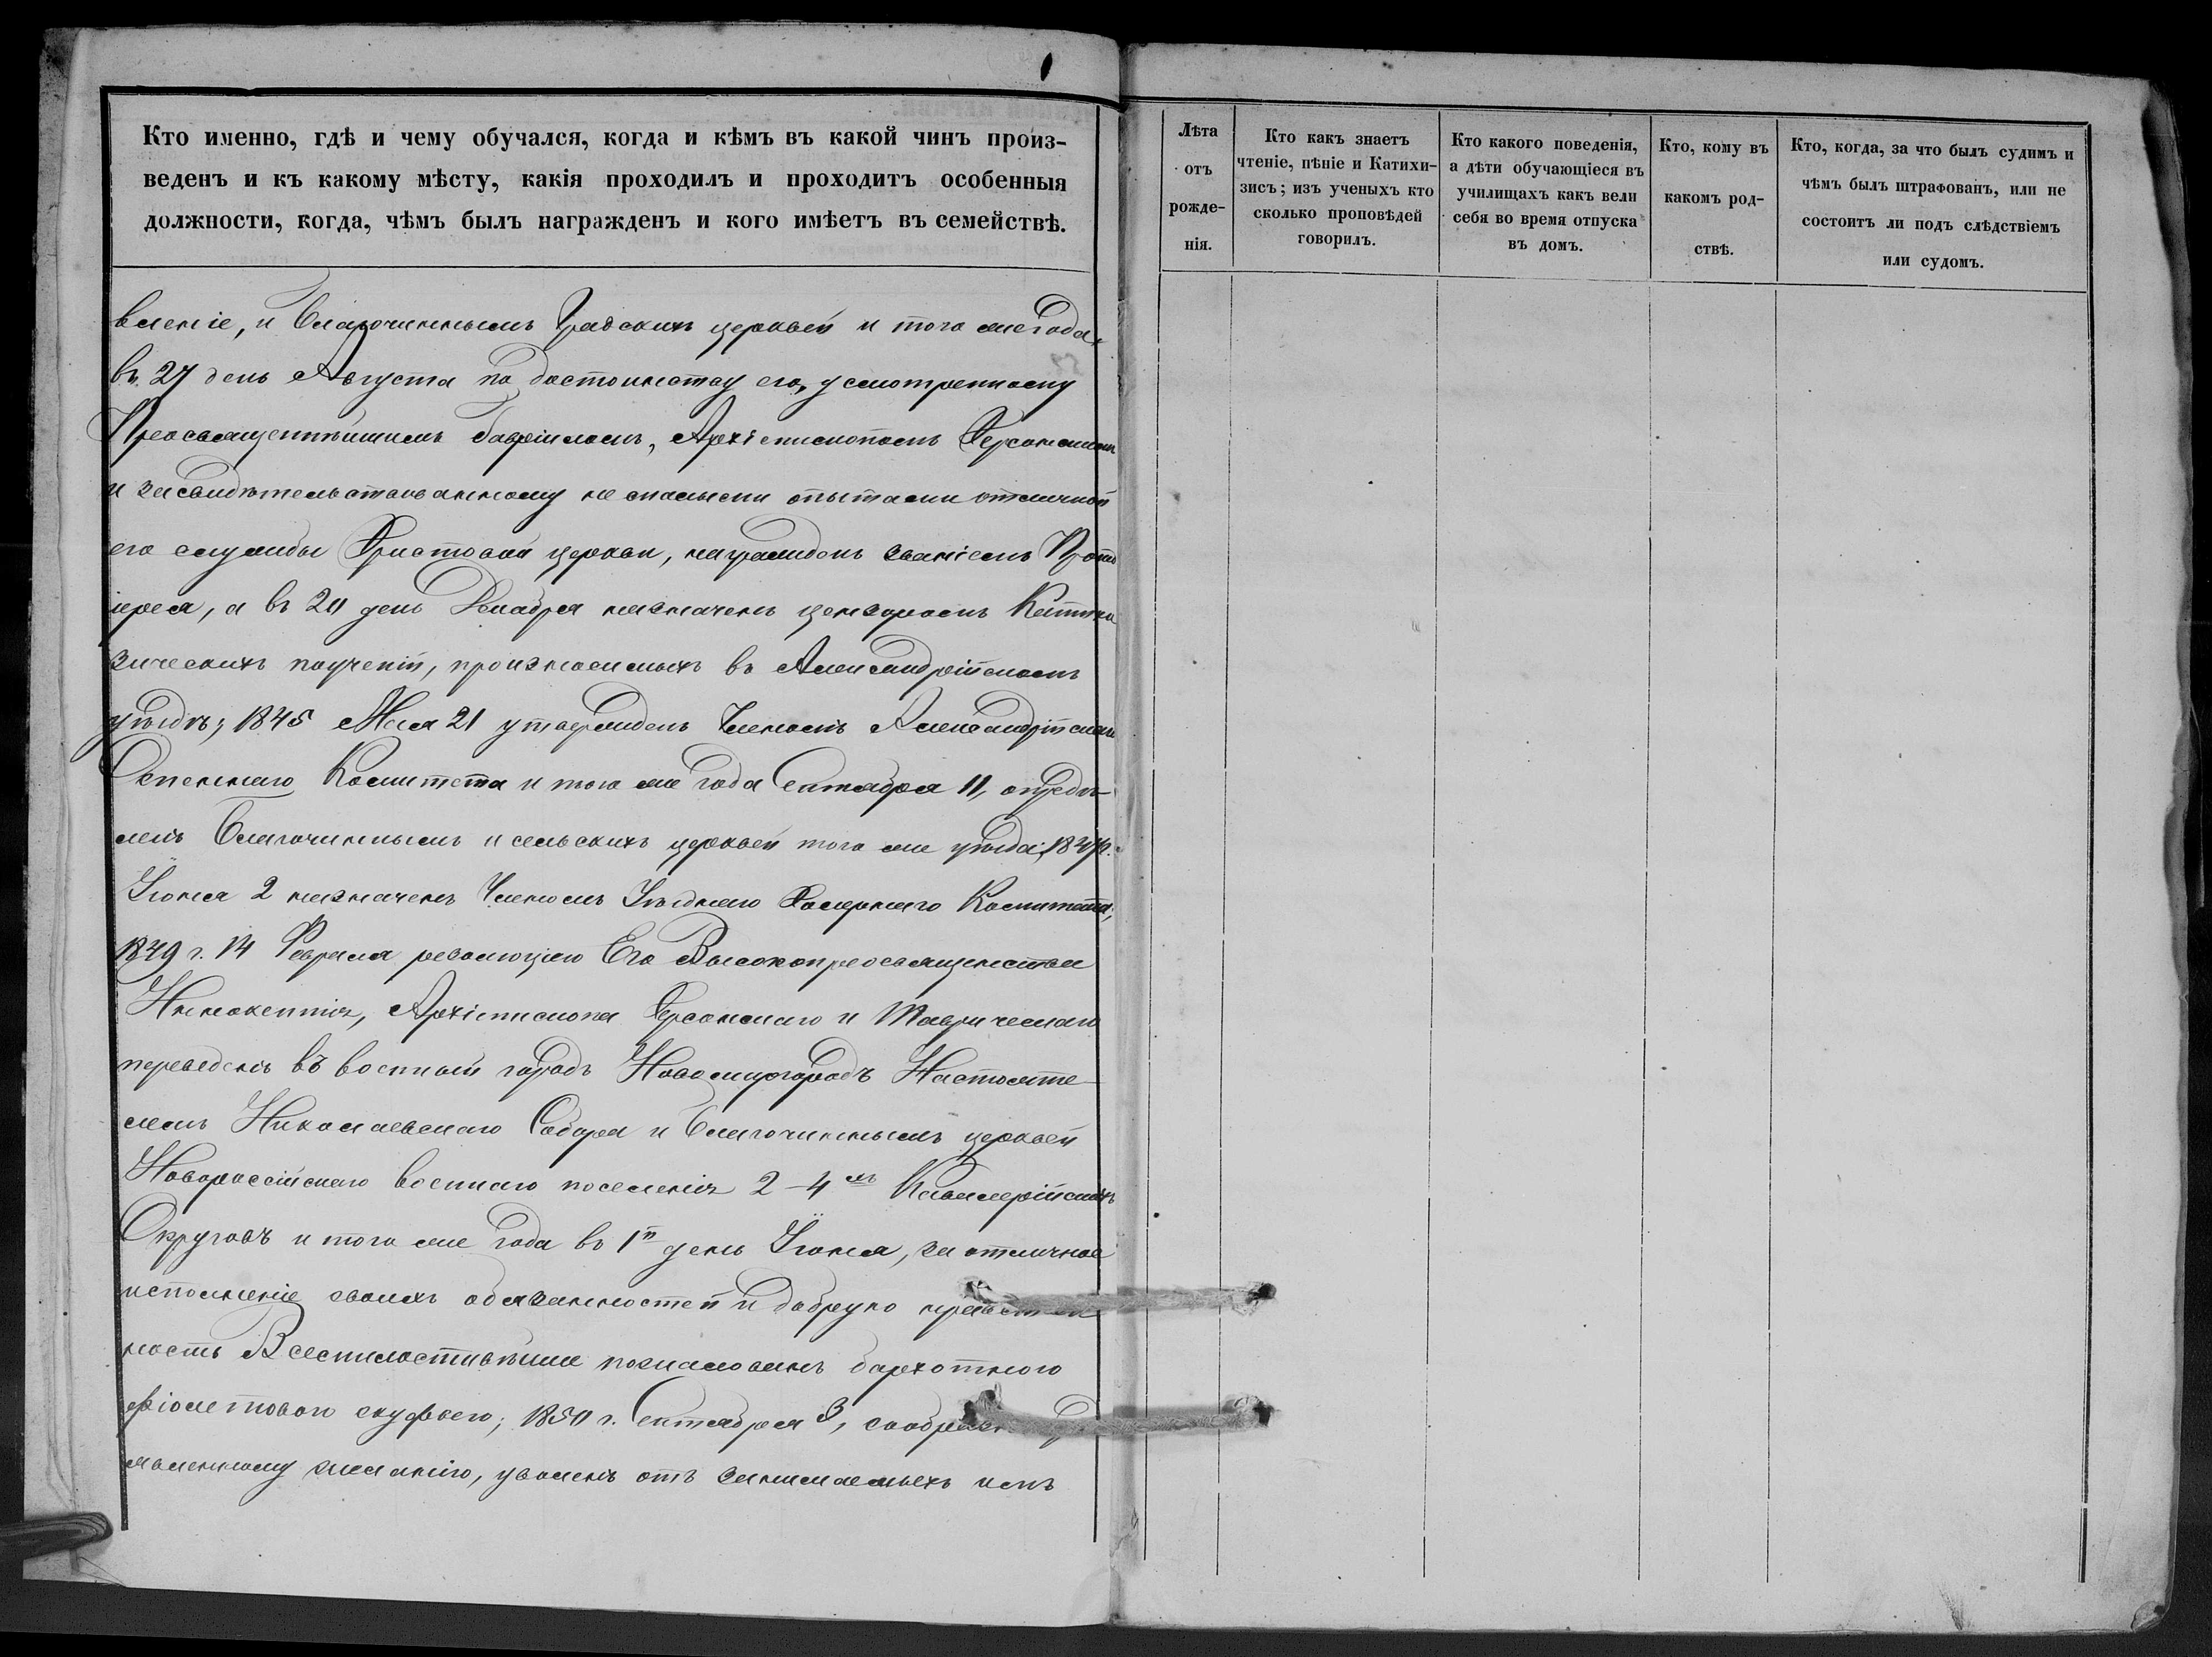 Кто именно, гдѣ и чему обучался, когда и кѣмъ въ какой чинъ произ-
веденъ и къ какому мѣсту, какія проходилъ и проходитъ особенныя
должности, когда, чѣмъ былъ награжденъ и кого имѣетъ въ семействѣ.
вленіе, и Благочиннымъ Градскихъ церквей и того же года,
въ 27 день Августа по достоинству его, усмотренному
Преосвященнѣйшимъ Гавріиломъ, Архіепископомъ Херсонскимъ
и засвидѣтельствованному не малыми опытами отличной
его службы Христовой церкви, награжденъ званіемъ Прото
іерея, а въ 20 день Декабря назначенъ цензоромъ Катихи
зическихъ поученій, произносимыхъ въ Александрійскомъ
уѣздѣ; 1845 Мая 21 утвержденъ Членомъ Александрійскаго
Оспеннаго Комитета и того же года Сентября 11, опредѣ-
ленъ Благочиннымъ и сельскихъ церквей того же уѣзда; 1847 г.
Іюня 2 назначенъ Членомъ Уѣзднаго Холернаго Комитета;
1849 г. 14 Февраля резолюціею Его Высокопреосвященства
Иннокентія, Архіепископа Херсонскаго и Таврическаго
переведенъ въ военный городъ Новомиргородъ Настояте-
лемъ Николаевскаго Собора и Благочиннымъ церквей
Новороссійскаго военнаго поселенія 2-4хъ Кавалерійскихъ
Округовъ и того же года въ 1й день Іюня, за отличное
исполненіе своихъ обязанностей и добрую нравствен
ность Всемилостивѣйше пожалованъ бархотною
фіолетовою скуфьею; 1850 г. Сентября 3,
явленному желанію, уволенъ отъ занимаемыхъ имъ
Лѣта
отъ
рожде-
нія.
Кто какъ знаетъ
чтеніе, пѣніе и Катихи-
зисъ; изъ ученыхъ кто
сколько проповѣдей
говорилъ.
Кто какого поведенія,
а дѣти обучающіеся въ
училищахъ какъ вели
себя во время отпуска
въ домъ.
Кто, кому въ
какомъ род-
ствѣ.
Кто, когда, за что былъ судимъ и
чѣмъ былъ штрафованъ, или не
состоитъ ли подъ слѣдствіемъ
или судомъ.